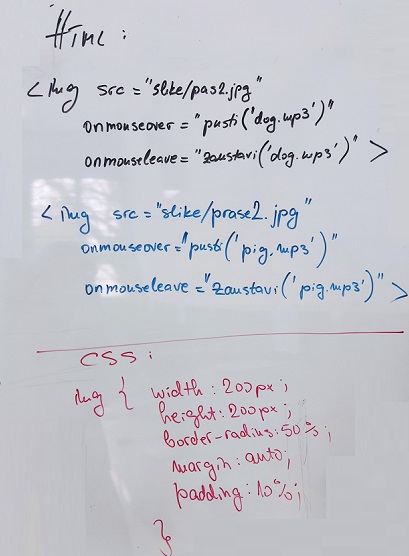 HTML:
<img src="slike/pas2.jpg"
onmouseover="pusti('dog.mp3')"
onmouseleave="zaustavi('dog.mp3')">
<img src="slike/prase2.jpg"
onmouseover="pusti('pig.mp3')"
onmouseleave="zaustavi('pig.mp3')">
CSS:
img { width: 200px;
height: 200px;
border-radius: 50%;
margin: auto;
padding: 10%;
}